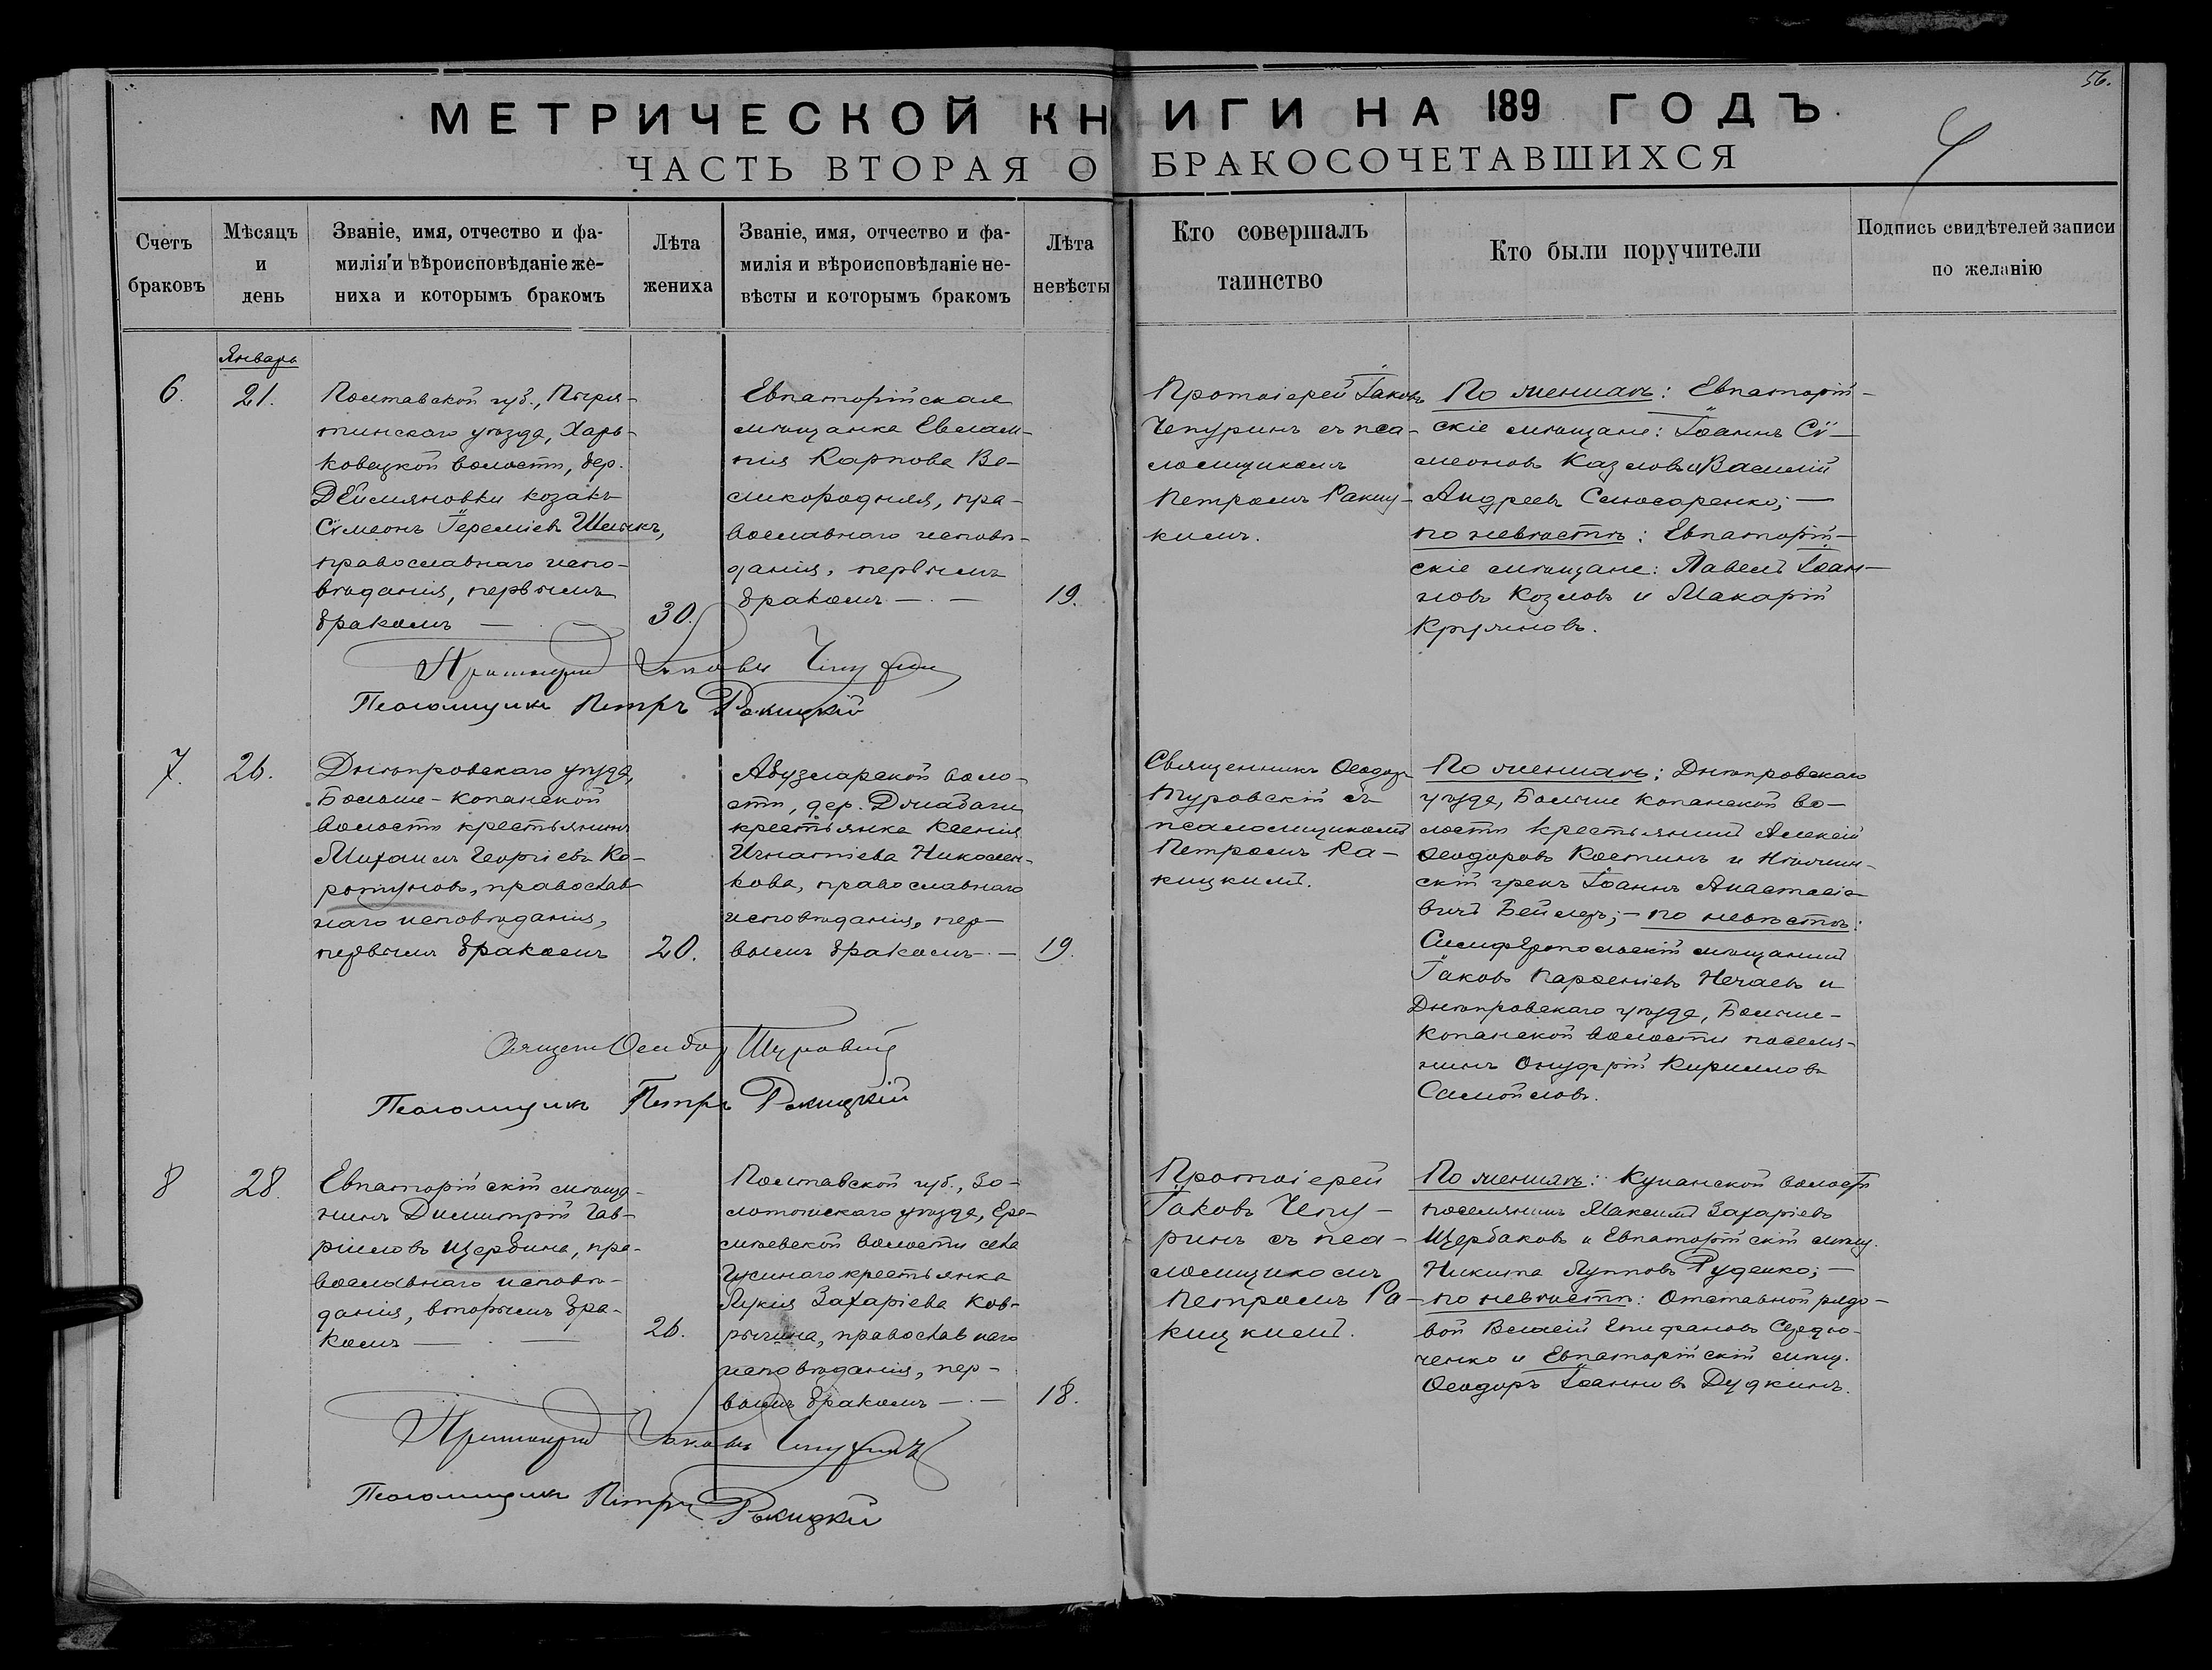 56.
МЕТРИЧЕСКОЙ КНИГИ НА 189 ГОДЪ
ЧАСТЬ ВТОРАЯ О БРАКОСОЧЕТАВШИХСЯ
Счетъ
браковъ
Мѣсяцъ
и
день
Званіе, имя, отчество и фа-
милія и вѣроисповѣданіе же-
ниха и которымъ бракомъ
Лѣта
жениха
Званіе, имя, отчество и фа-
милія и вѣроисповѣданіе не-
вѣсты и которымъ бракомъ
Лѣта
невѣсты
Кто совершалъ
таинство
Кто были поручители
Подпись свидѣтелей записи
по желанію
Январь
6.
21.
Полтавской губ., Пиря-
тинскаго уѣзда, Харь-
ковецкой волости, дер.
Деймановки козакъ
Сѵмеонъ Іереміевъ
православнаго испо-
вѣданія, первымъ
бракомъ —
30.
Евпаторійская
мѣщанка Евлам-
пія Карпова Ве-
ликородная, пра-
вославнаго исповѣ-
данія, первымъ
бракомъ — · —
19.
Протоіерей Іаковъ
Чепуринъ съ пса-
ломщикомъ
Петромъ Ракиц-
кимъ.
По женихѣ: Евпаторій-
скіе мѣщане: Іоаннъ Сѵ-
меоновъ Казловъ и Василій
Андреевъ Слюсаренко; —
по невѣстѣ: Евпаторій-
скіе мѣщане: Павелъ Іоан-
новъ Козловъ и Макарій
Протоіерей Іаковъ Чепуринъ
Псаломщикъ Петръ Ракицкій
7.
26.
Днѣпровскаго уѣзда,
Больше-Копанской
волости крестьянинъ
Михаилъ Георгіевъ Ко-
ротуновъ, православ-
наго исповѣданія,
первымъ бракомъ
20.
Абузларской воло-
сти, дер. Джабачи
крестьянка Ксенія
Игнатіева Николен-
кова, православнаго
исповѣданія, пер-
вымъ бракомъ —·—
19.
Священникъ Ѳеодоръ
Туровскій съ
псаломщикомъ
Петромъ Ра-
кицкимъ.
По женихѣ: Днѣпровскаго
уѣзда, Больше Копанской во-
лости крестьянинъ Алексій
Ѳеодоровъ Костинъ и Нѣжин-
скій грекъ Іоаннъ Анастасіе-
вичъ ; — по невѣстѣ:
Симферопольскій мѣщанинъ
Іаковъ Парѳеніевъ Нечаевъ и
Днѣпровскаго уѣзда, Больше-
Копанской волости поселя-
нинъ Онуфрій Кирилловъ
Самойловъ.
Священ Ѳеодоръ Туровскій
Псаломщикъ Петръ Ракицкій
8
28.
Евпаторійскій мѣща-
нинъ Димитрій Гав-
рииловъ Щербина, пра-
вославнаго исповѣ-
данія, вторымъ бра-
комъ — —
26.
Полтавской губ., Зо-
лотоискаго уѣзда, Ере-
міевской волости села
крестьянка
Лукія Захаріева Ков-
, православнаго
исповѣданія, пер-
вымъ бракомъ —·—
18.
Протоіерей
Іаковъ Чепу-
ринъ съ пса-
ломщикомъ
Петромъ Ра-
кицкимъ.
По женихѣ: волости
поселянинъ Максимъ Захаріевъ
Щербаковъ и Евпаторійскій мѣщ.
Никита Лупповъ Руденко; —
по невѣстѣ: Отставной рядо-
вой Власій Епифановъ Сердю-
ченко и Евпаторійскій мѣщ.
Ѳеодоръ Іоанновъ Дудкинъ.
Протоіерей Іаковъ Чепуринъ
Псаломщикъ Петръ Ракицкій